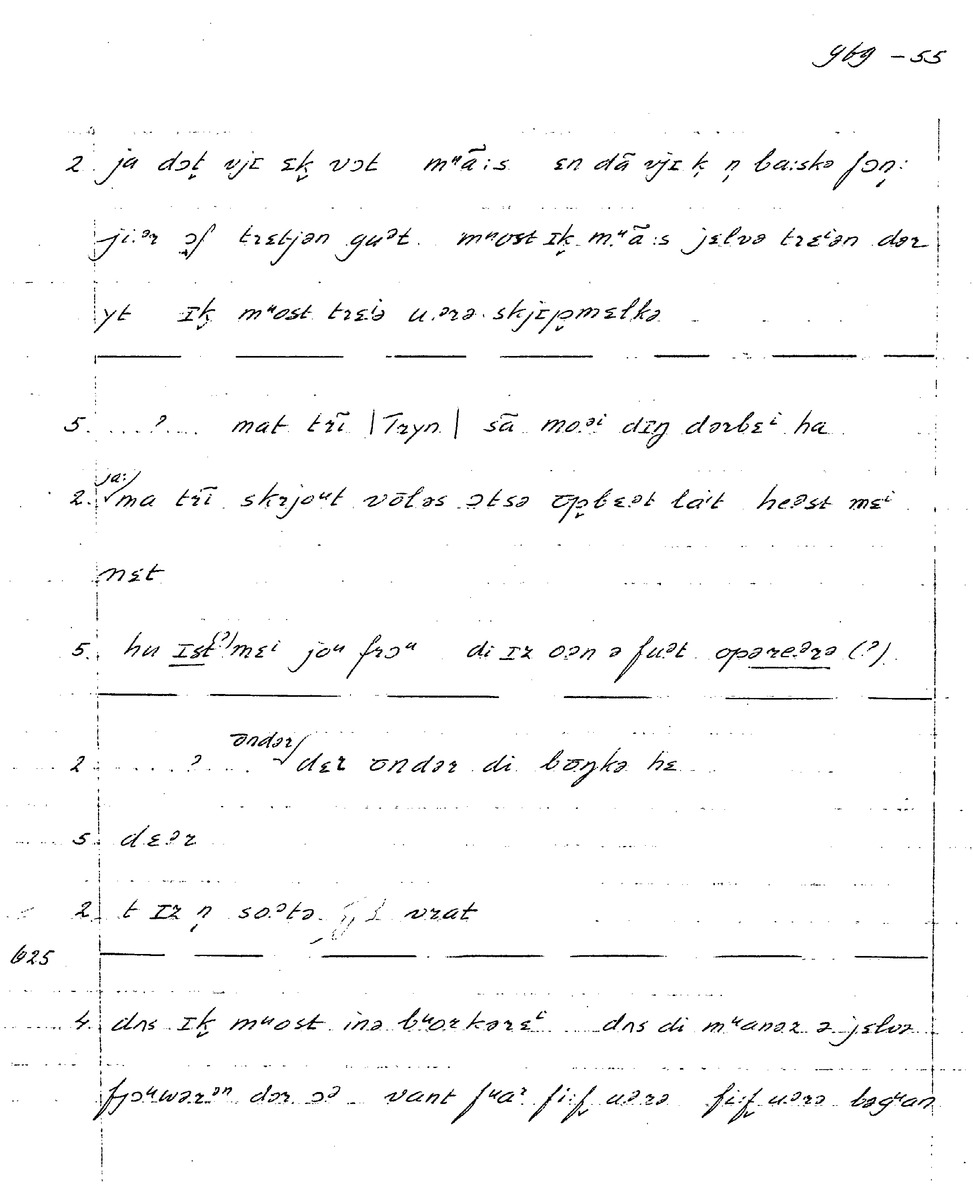 gbg - 55
2. ja dɔt̬ vjɪ ɛk̬ vɔt mᵘã:s ɛn dā vjɪ k̬ n̩ ba:skə fɔn̩:
ji:ər ɔf trɛtjən guᵊt. mᵘost ɪk̬ mᵘã:s jɛlvə trɛⁱən dər
yt ɪk̬ mᵘost trɛⁱə u.ərə skjɪp̬mɛlkə
5. ...?... mat trī |Tryn| sā mo.ᵊi dɪŋ dərbɛⁱ ha
2. ja:/ ma trī skrjoᵘt vōləs ɔtsə ōp̬bɛᵊt la:t heᵊst mɛⁱ
nɛt
5. hu ɪst(?) mɛⁱ joᵘ frɔᵘ di ɪz oən ə fuᵊt opəreᵊrə (?).
2. ....?... ōndər/ dɛr ōndər di bōŋkə hɛ
5. dɛᵊr
2. t ɪz n̩ so.ᵊtə vrat
625
4. dʌs ɪk̬ mᵘost inə bᵘorkərɛⁱ dʌs di mᵘanər ə jɛlvə
fjɔᵘwərᵊn dər ɔə vant fᵘar fi:f̬ uᵊrə fi:f̬ uᵊrə bəgᵘan